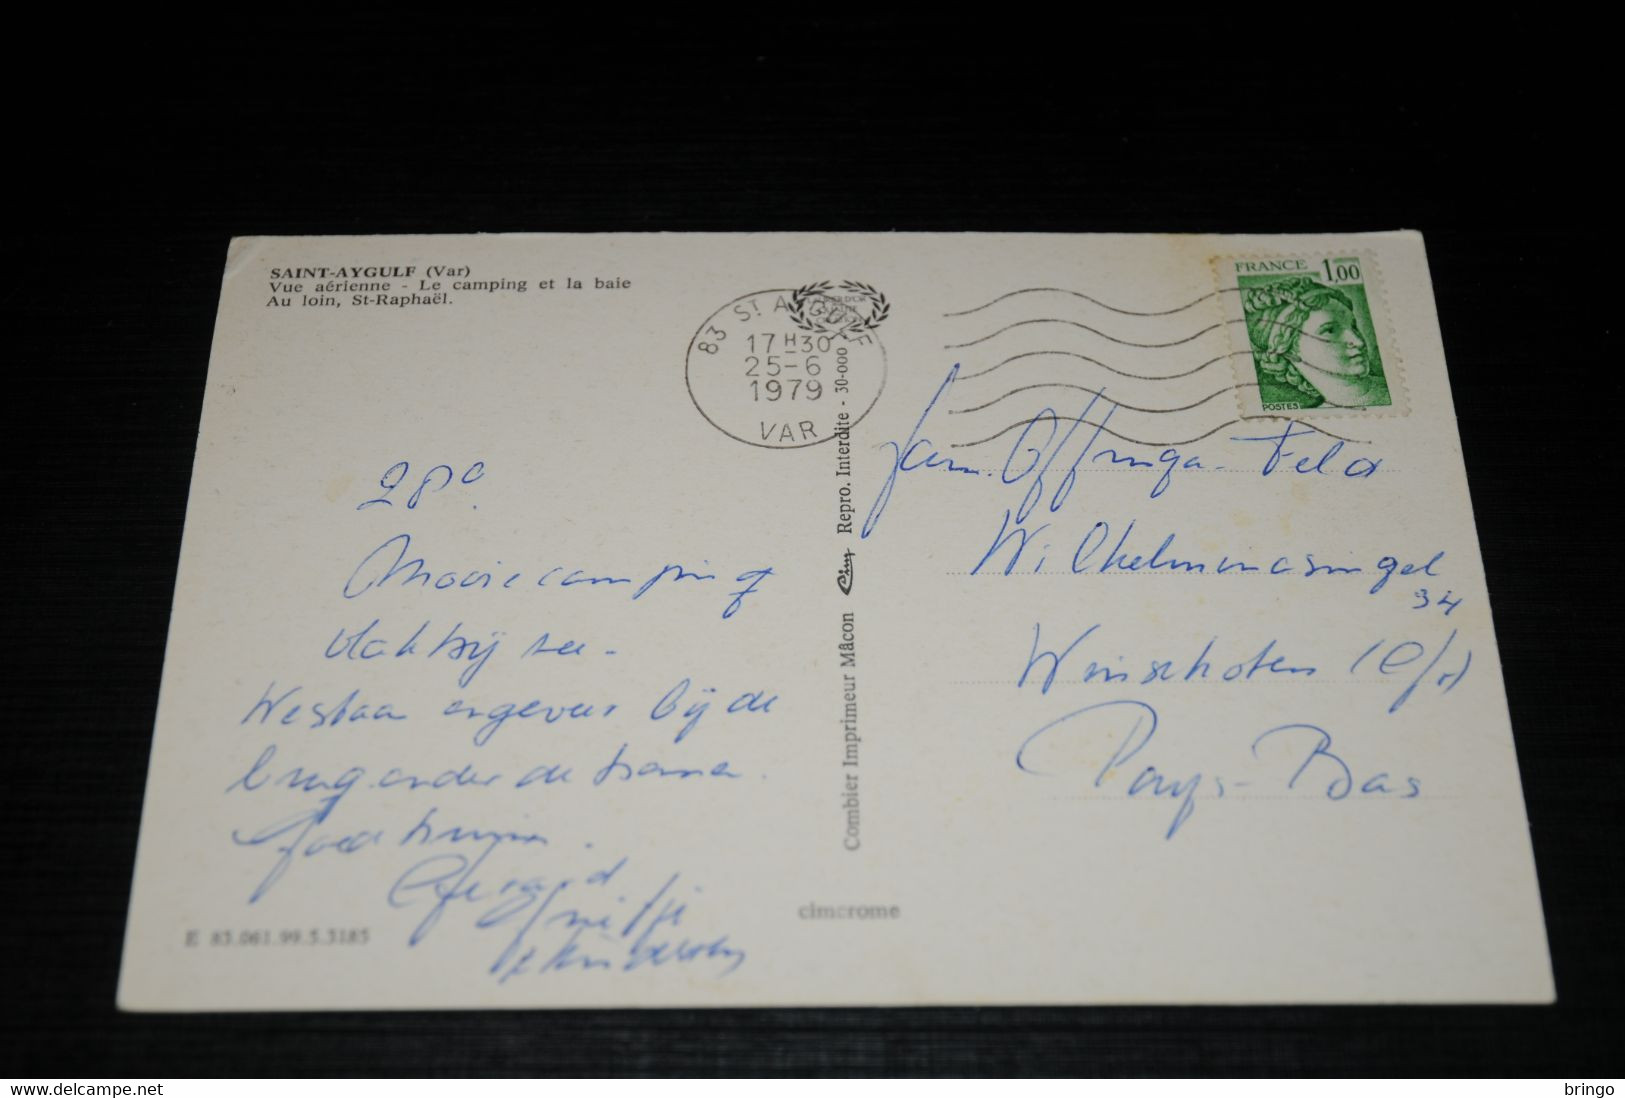 SAINT-AYGULF (Var)
Vue aérienne - Le camping et la baie
Au loin, St-Raphaël.
83 ST AYGULF
17 H 30
25-6
1979
VAR
FRANCE 1,00
POSTES
28°
Mooie camping
vlak bij zee.
We staan ongeveer bij de
brug onder de bomen.
Goed huizen.
Gerard
& kinderen
Fam. Offringa - Feld
Wilhelminasingel
34
Winschoten
Pays-Bas
Combier Imprimeur Mâcon Cim Repro. Interdite - 30-000
cimcrome
E 83.061.99.5.3185
www.delcampe.net
bringo